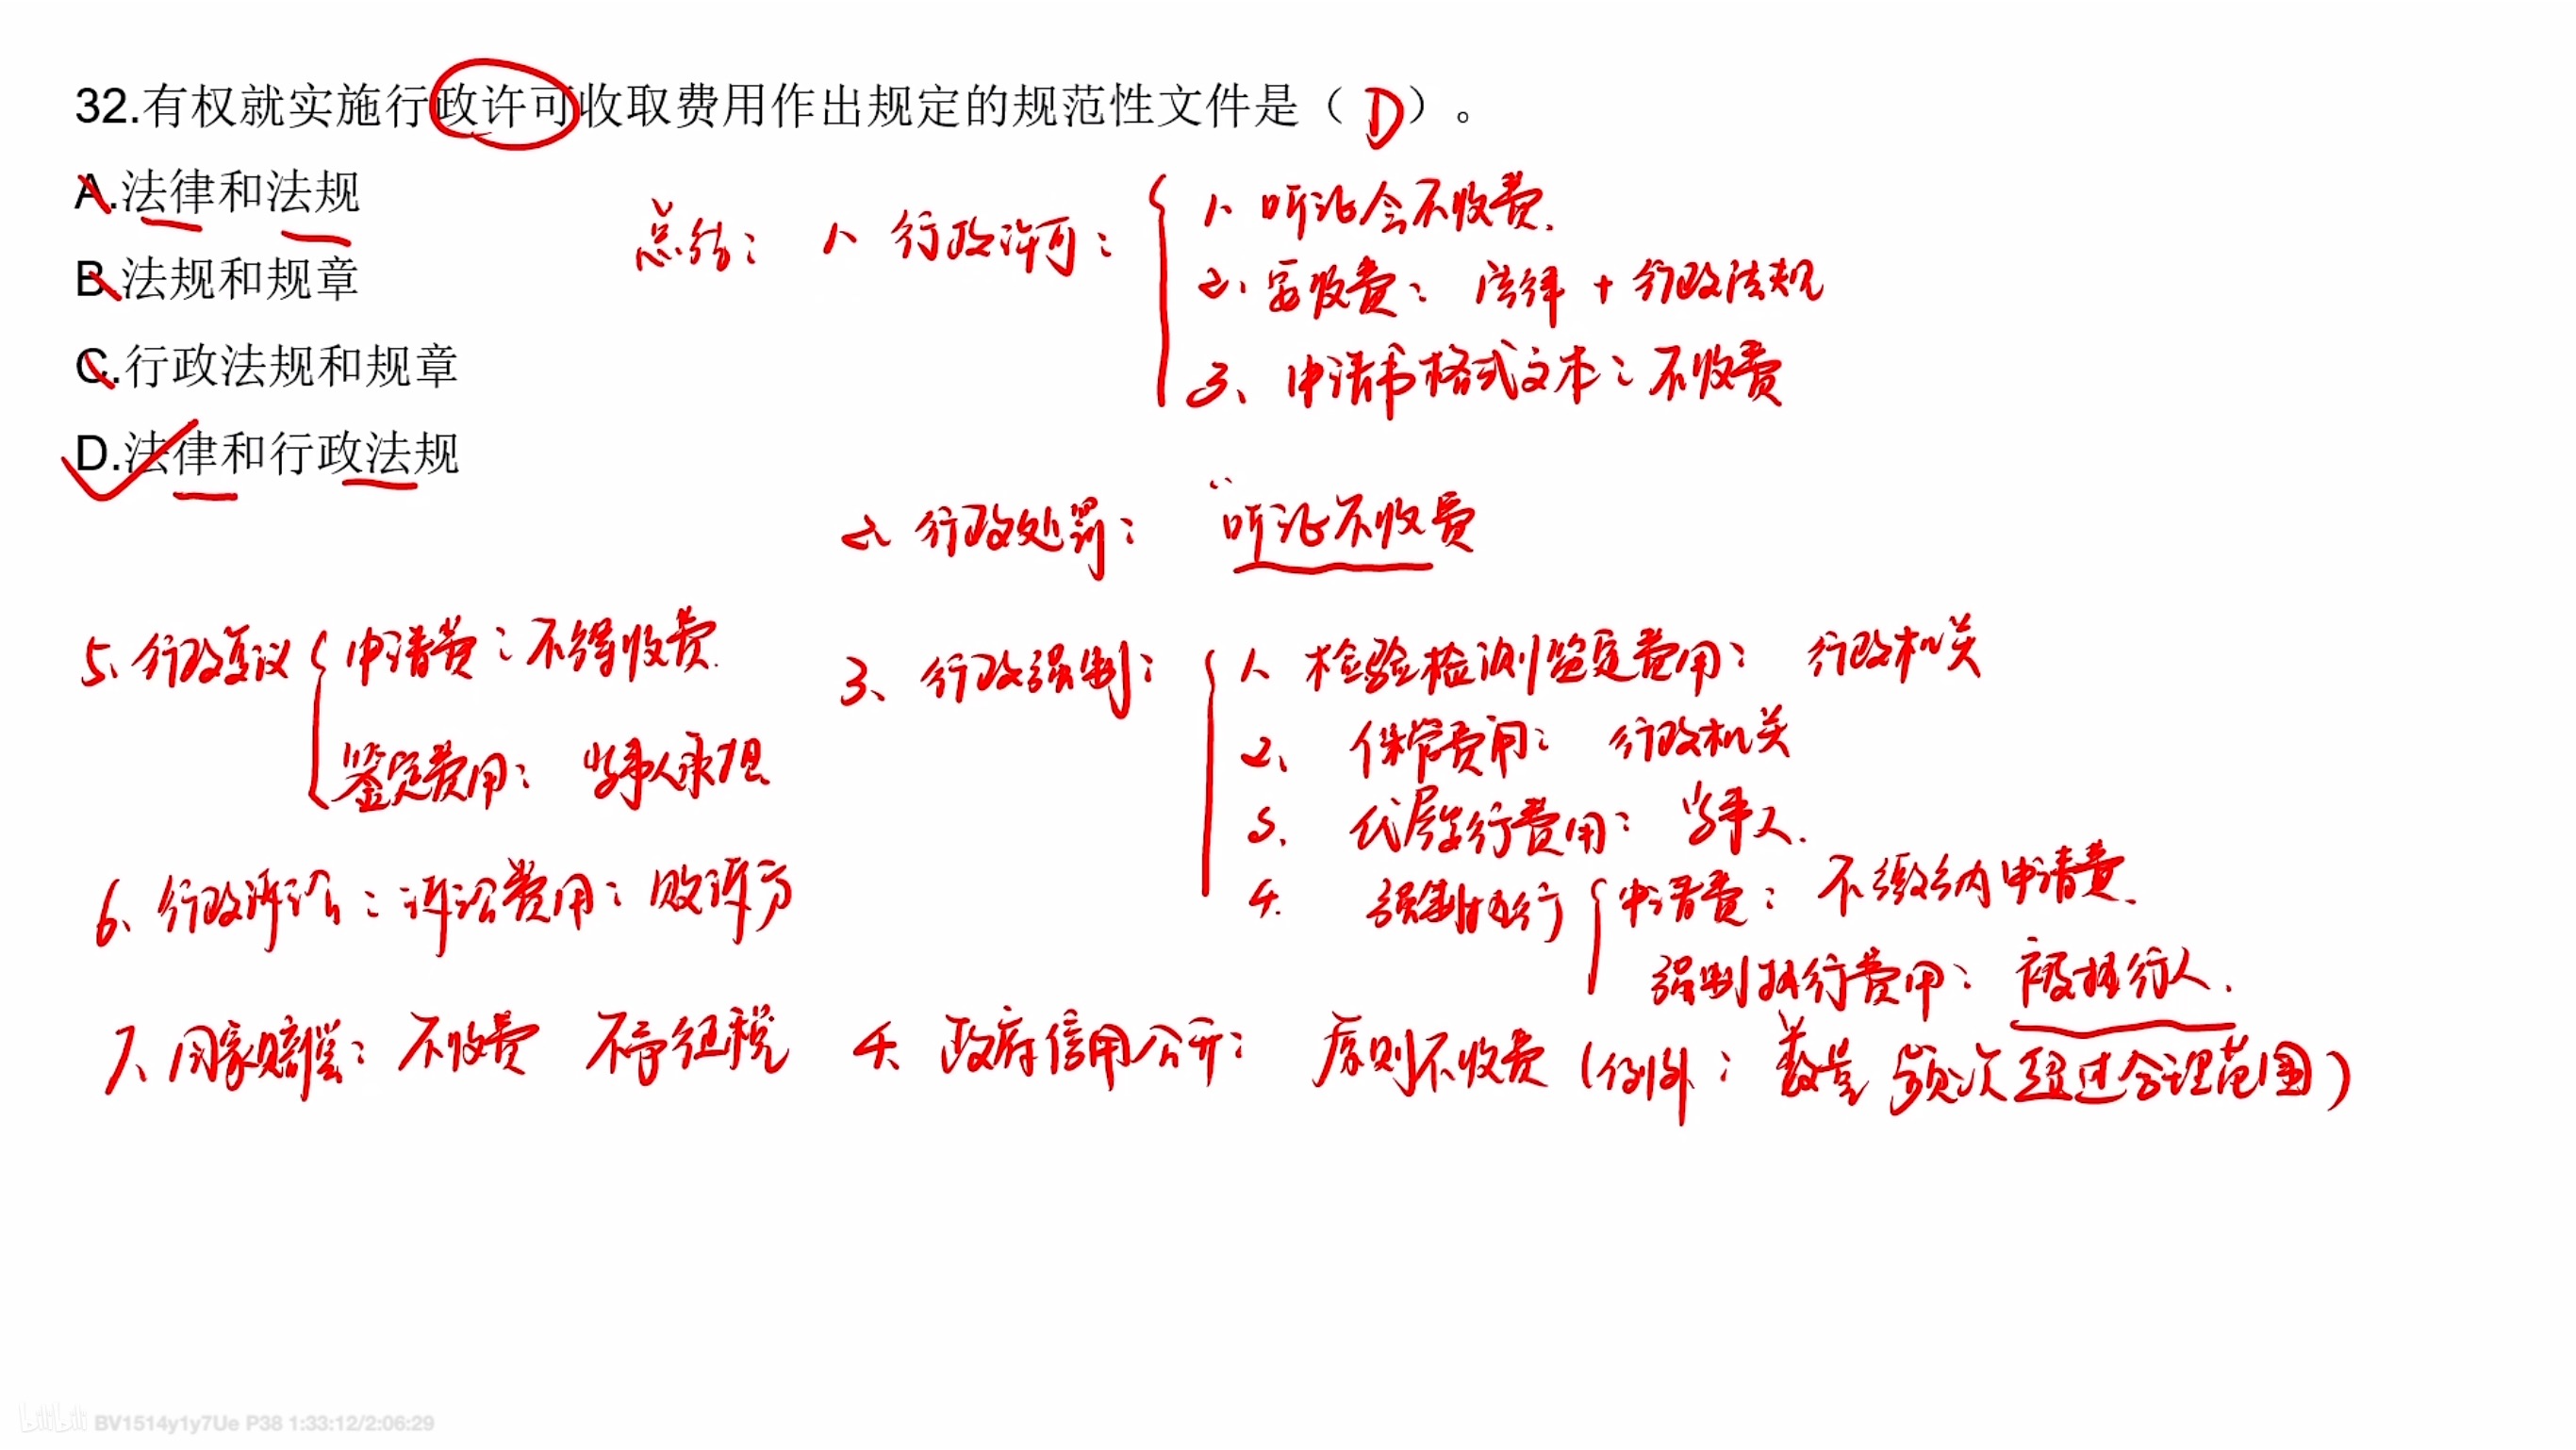 32.有权就实施行政许可收取费用作出规定的规范性文件是（ D ）。
A.法律和法规
B.法规和规章
C.行政法规和规章
D.法律和行政法规
总结： 1、行政许可：
1、听证会不收费.
2、要收费：法律 + 行政法规
3、申请书格式文本：不收费
2、行政处罚： 听证不收费
3、行政强制：
1、检验检测鉴定费用： 行政机关
2、保管费用： 行政机关
3、代履行费用： 当事人.
4. 强制执行
申请费：不缴纳申请费.
强制执行费用：被执行人.
4、政府信用公开： 原则不收费（例外：数量 频次 超过合理范围）
5、行政复议
申请费：不得收费.
鉴定费用： 当事人承担
6、行政诉讼：诉讼费用：败诉方
7、国家赔偿：不收费 不予征税
bilibili BV1514y1y7Ue P38 1:33:12/2:06:29